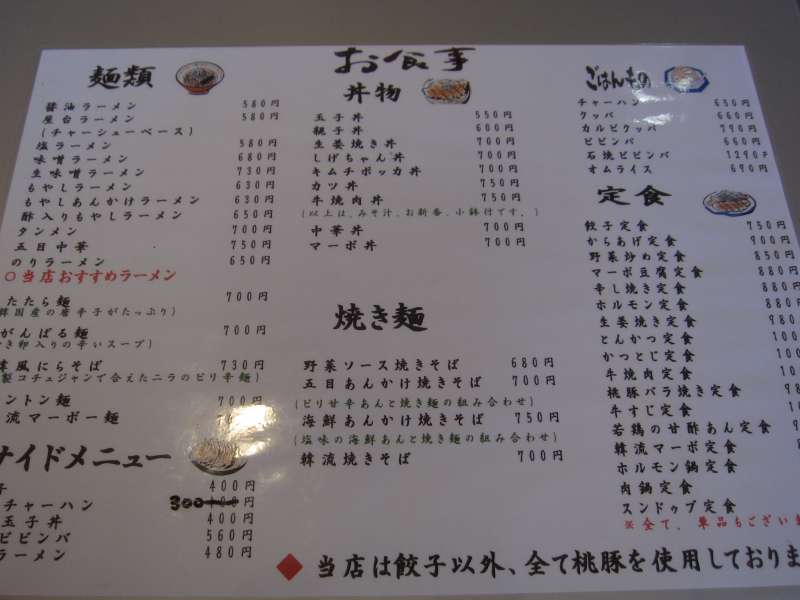 お食事
麺類
醤油ラーメン 580円
屋台ラーメン 580円
(チャーシューベース)
塩ラーメン 580円
味噌ラーメン 680円
生味噌ラーメン 730円
もやしラーメン 630円
もやしあんかけラーメン 630円
酢入りもやしラーメン 650円
タンメン 700円
五目中華 750円
のりラーメン 650円
○当店おすすめラーメン
たたら麺 700円
韓国産の唐辛子がたっぷり)
がんばる麺 700円
き卵入りの辛いスープ)
韓風にらそば 730円
製コチュジャンで合えたニラのピリ辛麺)
ントン麺 700円
流マーボー麺 円
サイドメニュー
子 400円
チャーハン 300 円
玉子丼 400円
ビビンバ 560円
ラーメン 480円
丼物
玉子丼 550円
親子丼 600円
生姜焼き丼 700円
しげちゃん丼 700円
キムチポッカ丼 700円
カツ丼 750円
牛焼肉丼 750円
(以上は、みそ汁、お新香、小鉢付です。)
中華丼 700円
マーボ丼 700円
焼き麺
野菜ソース焼きそば 680円
五目あんかけ焼きそば 700円
(ピリ甘辛あんと焼き麺の組み合わせ)
海鮮あんかけ焼きそば 750円
(塩味の海鮮あんと焼き麺の組み合わせ)
韓流焼きそば 700円
ごはんもの
チャーハン 650円
クッパ 660円
カルビクッパ 790円
ビビンバ 660円
石焼ビビンバ 1290円
オムライス 690円
定食
餃子定食 750円
からあげ定食 900円
野菜炒め定食 850円
マーボ豆腐定食 880円
辛し焼き定食 880円
ホルモン定食 880
生姜焼き定食 980
とんかつ定食 100
かつとじ定食 105
牛焼肉定食 100
桃豚バラ焼き定食 98
牛すじ定食 10
若鶏の甘酢あん定食 9
韓流マーボ定食
ホルモン鍋定食
肉鍋定食
スンドゥブ定食
※全て、単品もございま
◆当店は餃子以外、全て桃豚を使用しておりま